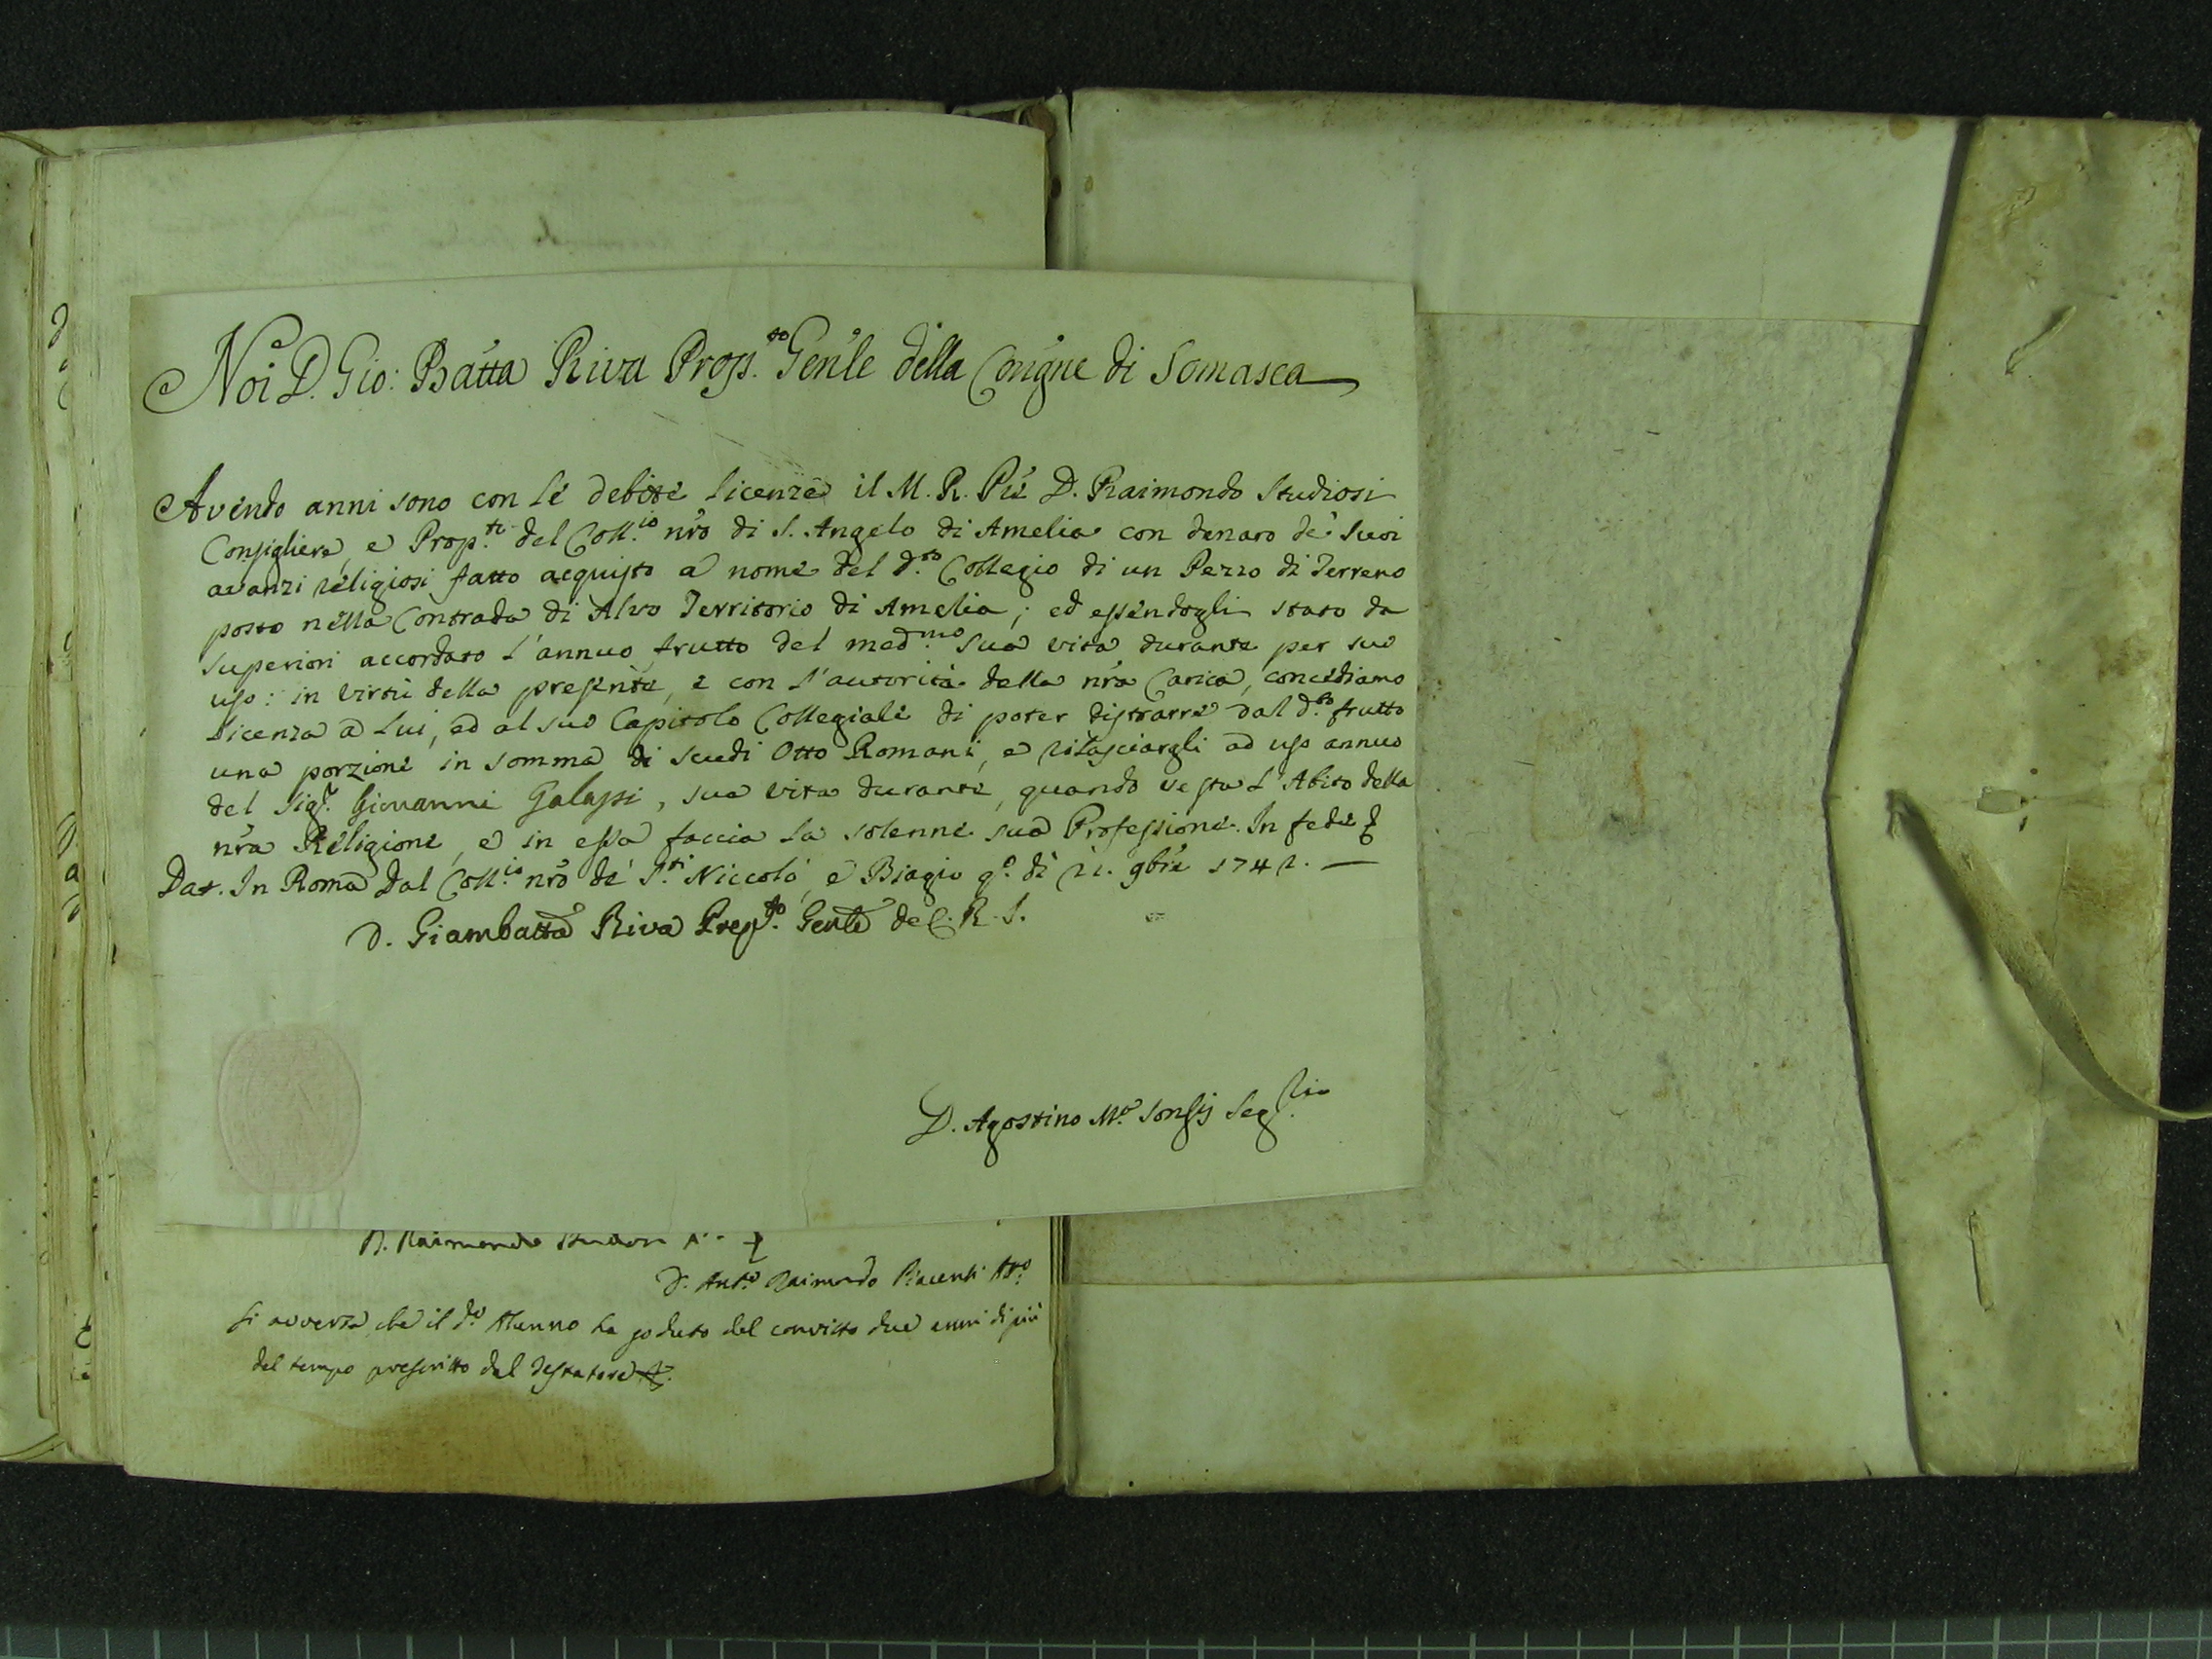 Noi D. Gio: Batta Riva Prop.to Gen'le della Con'gne di Somasca
Avendo anni sono con le debite licenze il M. R. P're D. Raimondo Studiosi
Consigliere, e Prop.to del Coll.io n'ro di S. Angelo di Amelia con denaro de' suoi
avanzi religiosi fatto acquisto a nome del d.to Collegio di un Pezzo di Terreno
posto nella Contrada di Alvo Territorio di Amelia; ed essendogli stato da
superiori accordato l'annuo frutto del med.mo sua vita durante per suo
uso: in virtù della presente, e con l'autorità della n'ra Carica, concediamo
licenza a lui, ed al suo Capitolo Collegiale di poter distrarre dal d.to frutto
una porzione in somma di scudi Otto Romani, e rilasciargli ad uso annuo
del Sig.r Giovanni Galassi, sua vita durante, quando vesta l'Abito della
n'ra Religione, e in essa faccia la solenne sua Professione. In fede
Dat. In Roma dal Coll.io n'ro de' S.ti Niccolò, e Biagio q.o dì 21. 9bre 1742.
D. Giambatta Riva Prep.to Gen'le de C. R. S.
D. Agostino M.a Seg.rio
D. Raimondo
D. Ant.o Raimondo Piacenti
Si avverta, che il d.o Alunno ha goduto del convitto due anni di più
del tempo prescritto dal Testatore